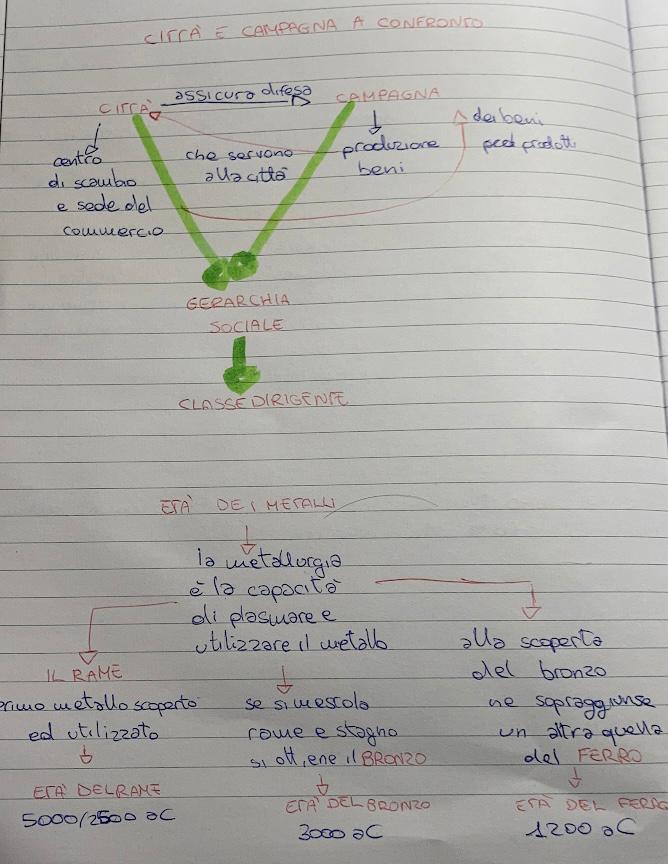 CITTÀ E CAMPAGNA A CONFRONTO
CITTÀ
assicura difesa
CAMPAGNA
centro
di scambio
e sede del
commercio
che servono
alla città
produzione
beni
dei beni
prodotti
GERARCHIA
SOCIALE
CLASSE DIRIGENTE
ETÀ DEI METALLI
la metallurgia
è la capacità
di plasmare e
utilizzare il metallo
IL RAME
primo metallo scoperto
ed utilizzato
ETÀ DEL RAME
5000/2500 aC
se si mescola
rame e stagno
si ottiene il BRONZO
ETÀ DEL BRONZO
3000 aC
alla scoperta
del bronzo
ne sopraggiunse
un altra quella
del FERRO
ETÀ DEL FERRO
1200 aC